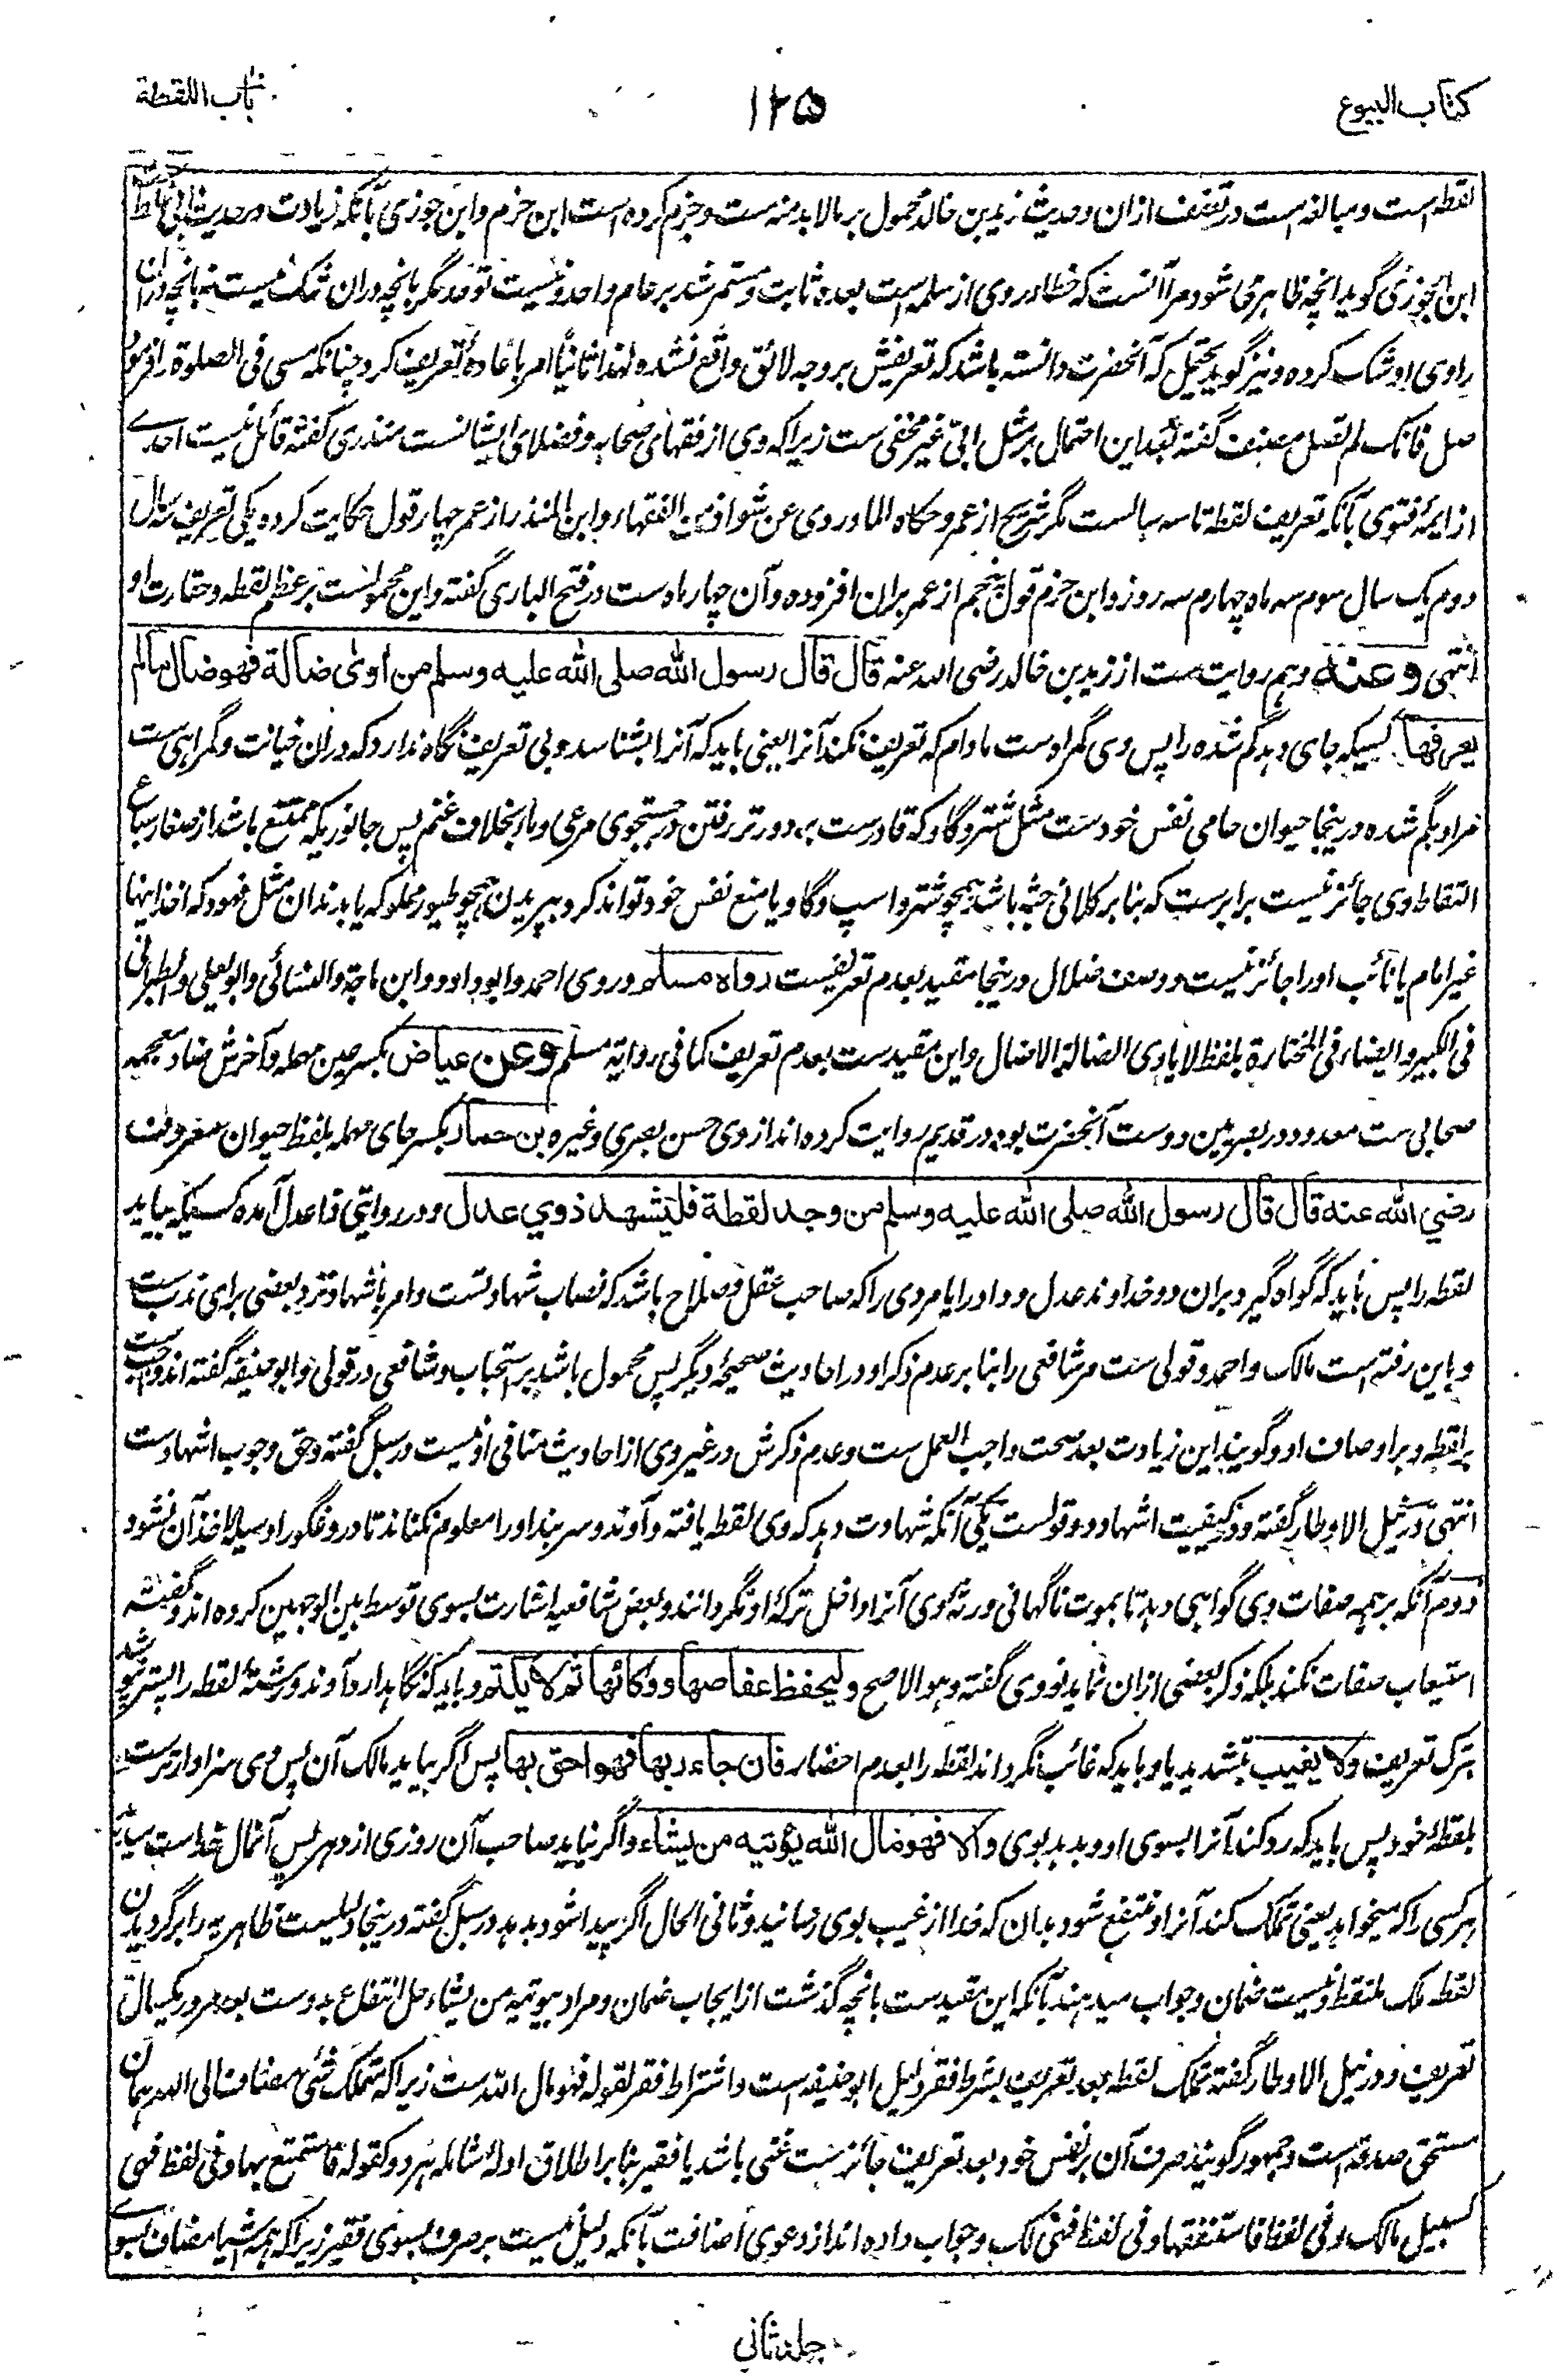 کتاب البیوع
۱۲۵
باب اللقطة
لقطه است و مبالغه است در تعفف ازان و حدیث زید بن خالد محمول بر مالابد منه ست و جزم کرده است ابن حزم و ابن جوزی بآنکه زیادت در حدیث ابی غلط
ابن الجوزی گوید انچه ظاهر می شود مرا آنست که خطا در وی از سلمه است بعده ثابت و مستمر شد بر عام واحد و نیست توخذ مگر بانچه دران شک نیست نه بانچه دران
راوی او شک کرده و نیز گوید یحتمل که آنحضرت دانسته باشد که تعریفش بر وجه لائق واقع نشده ولهذا ثانیاً امر باعادهٔ تعریف کرد چنانکه مسی فی الصلوة را فرمود
صل فانک لم تصل مصنف گفته بعد این احتمال بر مثل ابی غیر مخفی ست زیرا که وی از فقهای صحابه و فضلای ایشانست منذری گفته قائل نیست احدے
از ایمهٔ فتوی بآنکه تعریف لقطه تا سه سالست مگر شریح از عمر و حکاه الماوردی عن شواذ من الفقهاء و ابن المنذر از عمر چهار قول حکایت کرده یکی تعریف سه سال
دوم یک سال سوم سه ماه چهارم سه روز و ابن حزم قول پنجم از عمر بران افزوده و آن چهار ماه ست در فتح الباری گفته و این محمولست بر عظم لقطه و حقارت او
انتهی وعنه وهم روایت ست از زید بن خالد رضی الله عنه قال قال رسول الله صلی الله علیه وسلم من اوی ضالة فهو ضال مالم
یعرفها کسیکه جای دهد گم شده را پس وی گمراه ست مادام که تعریف نکند آنرا یعنی باید که آنرا بشناسد و بی تعریف نگاه ندارد که دران خیانت و گمراهی ست
مراد بگم شده درینجا حیوان حامی نفس خودست مثل شتر و گاو که قادرست بر دورتر رفتن در جستجوی مرعی و ماء بخلاف غنم پس جانوریکه ممتنع باشد از صغار سباع
التقاط وی جائز نیست برابرست که بنا بر کلانی جثه باشد همچو شتر و اسپ و گاو یا منع نفس خود تواند کرد بپریدن همچو طیور مملوکه یا بدندان مثل فهود که اخذ اینها
غیر امام یا نائب او را جائز نیست و وصف ضلال درینجا مقید بعدم تعریفست رواه مسلم وروی احمد وابوداود وابن ماجة والنسائی وابویعلی والطبرانی
فی الکبیر والضیاء فی المختارة بلفظ لا یاوی الضالة الا ضال و این مقیدست بعدم تعریف کما فی روایة مسلم وعن عیاض بکسر عین مهمله و آخرش ضاد معجمه
صحابی ست معدود در بصریین دوست آنحضرت بوده در قدیم روایت کرده اند از وی حسن بصری و غیره بن حمار بکسر حای مهمله بلفظ حیوان معروف
رضی الله عنه قال قال رسول الله صلی الله علیه وسلم من وجد لقطة فلیشهد ذوي عدل و در روایتی ذا عدل آمده کسیکه بیابد
لقطه را پس باید که گواه گیرد بران دو خداوند عدل و داد را یا مردی را که صاحب عقل و صلاح باشد که نصاب شهادتست و امر باشهاد نزد بعضی برای ندب ست
و باین رفته است مالک و احمد و قولی ست مر شافعی را بنا بر عدم ذکر او در احادیث صحیحهٔ دیگر پس محمول باشد بر استحباب و شافعی در قولی و ابوحنیفه گفته اند واجب ست
بر لقطه و بر اوصاف او و گویند این زیادت بعد صحت واجب العمل ست و عدم ذکرش در غیر وی از احادیث منافی او نیست در سبل گفته و حق وجوب اشهادست
انتهی در نیل الاوطار گفته و در کیفیت اشهاد دو قولست یکی آنکه شهادت دهد که وی لقطه یافته و آوند و سربند او را معلوم نکناند تا دروغگو را وسیله اخذ آن نشود
دوم آنکه بر همه صفات وی گواهی دهد تا بموت ناگهانی ورثهٔ وی آنرا داخل ترکهٔ او نگردانند و بعض شافعیه اشارت بسوی توسط بین الوجهین کرده اند و گفته
استیعاب صفات نکند بلکه ذکر بعضی ازان نماید نووی گفته وهو الاصح ولیحفظ عفاصها ووکائها ثم لا یکتم و باید که نگاهدارد آوند و رشتهٔ لقطه را پستر نپوشد
بترک تعریف ولا یغیب بتشدید یا و باید که غائب نگرداند لقطه را بعدم احضار فان جاء ربها فهو احق بها پس اگر بیاید مالک آن پس وی سزاوارترست
بلقطهٔ خود پس باید که رد کند آنرا بسوی او و بدهد بوی والا فهو مال الله یؤتیه من یشاء و اگر نیاید صاحب آن روزی از دهر پس آنمال خداست میدهد
هر کسی را که میخواهد یعنی تملک کند آنرا و منتفع شود بدان که خدا از غیب بوی رسانید و ثانی الحال اگر پیدا شود بدهد در سبل گفته و درینجا دلیلیست ظاهریه را بر گردیدن
لقطه ملک ملتقط و نیست ضمان و جواب میدهند بآنکه این مقیدست بانچه گذشت از ایجاب ضمان و مراد بیوتیه من یشاء حل انتفاع بدوست بعد مرور یکسال
تعریف و در نیل الاوطار گفته تملک لقطه بعد تعریف بشرط فقر دلیل ابوحنیفه است و اشتراط فقر لقوله فهو مال الله ست زیرا که تملک شئ مضاف الی الله همان
مستحق صدقه است و جمهور گویند صرف آن بر نفس خود بعد تعریف جائزست غنی باشد یا فقیر بنا بر اطلاق ادلهٔ شامله هر دو کقوله فاستمتع بها وفی لفظ فهی
کسبیل مالک وفی لفظ فاستنفقها وفی لفظ فهی لک و جواب داده اند از دعوی اضافت بآنکه دلیل نیست بر صرف بسوی فقیر زیرا که همه اشیا مضاف بسوی
جلد ثانی